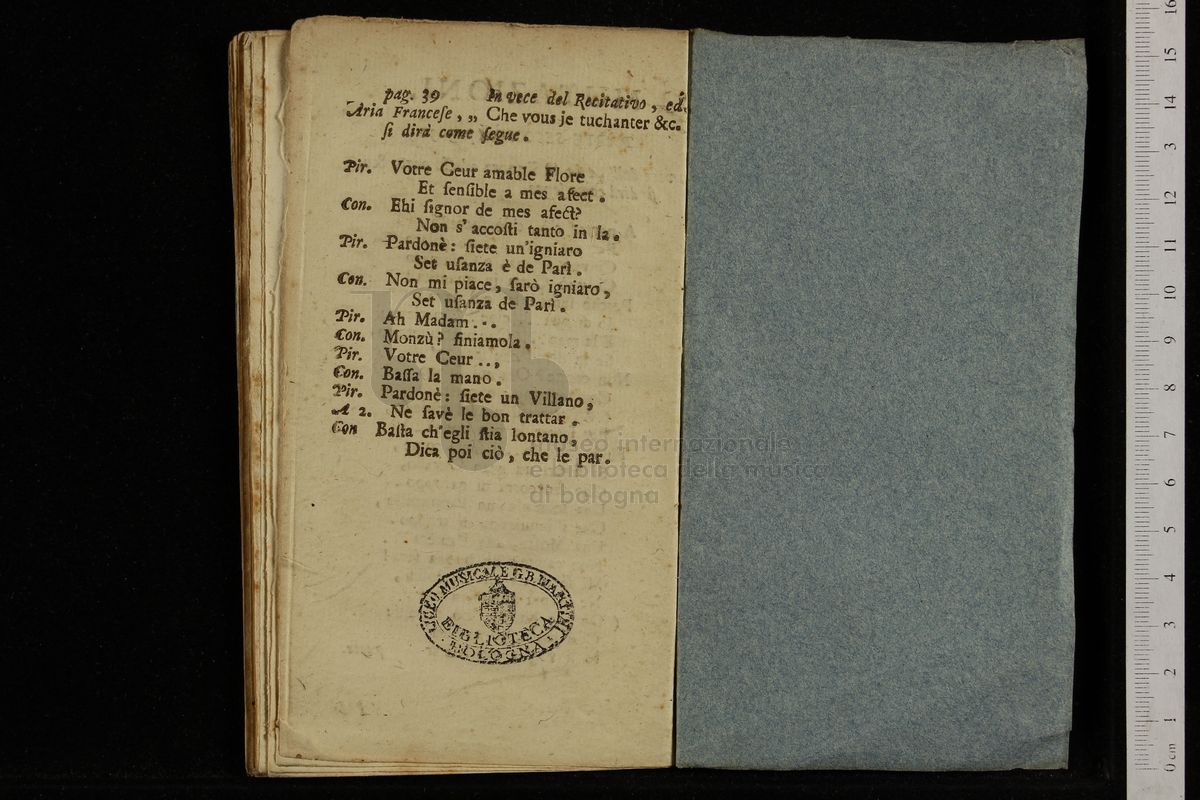 pag. 39 In vece del Recitativo, ed
Aria Franceſe, „ Che vous je tuchanter &c.
ſi dirà come ſegue.
Pir. Votre Ceur amable Flore
Et ſenſible a mes afect.
Con. Ehi ſignor de mes afect?
Non s'accoſti tanto in la.
Pir. Pardonè: ſiete un'igniaro
Set uſanza è de Parì.
Con. Non mi piace, ſarò igniaro,
Set uſanza de Parì.
Pir. Ah Madam...
Con. Monzù? finiamola.
Pir. Votre Ceur...
Con. Baſſa la mano.
Pir. Pardonè: ſiete un Villano,
A 2. Ne ſavè le bon trattar.
Con Baſta ch'egli ſtia lontano,
Dica poi ciò, che le par.
museo internazionale
e biblioteca della musica
di bologna
LICEO MUSICALE G.B. MARTINI
BIBLIOTECA
BOLOGNA
0 cm 1 2 3 4 5 6 7 8 9 10 11 12 13 14 15 16